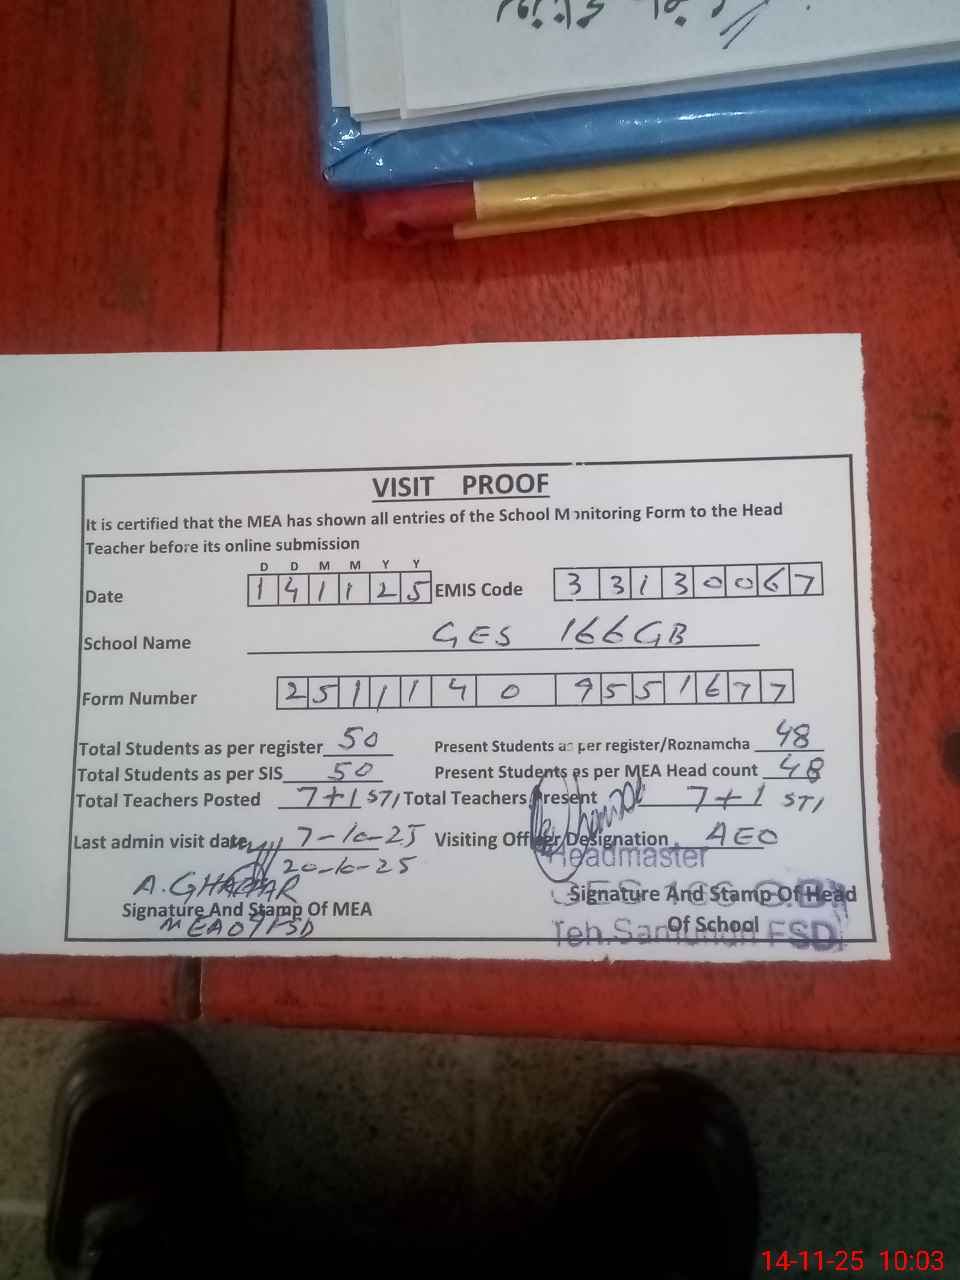 VISIT PROOF
It is certified that the MEA has shown all entries of the School Monitoring Form to the Head
Teacher before its online submission
D D M M Y Y
Date 1 4 1 1 2 5 EMIS Code 3 3 1 3 0 0 6 7
School Name GES 166 GB
Form Number 2 5 1 1 1 4 0 9 5 5 1 6 7 7
Total Students as per register 50 Present Students as per register/Roznamcha 48
Total Students as per SIS 50 Present Students as per MEA Head count 48
Total Teachers Posted 7+1 STI Total Teachers Present 7+1 STI
Last admin visit date 7-10-25 Visiting Officer Designation AEO
20-10-25
Headmaster
A. GHAFFAR
Signature And Stamp Of MEA Signature And Stamp Of Head
MEA 07 FSD Of School
Teh. Samundri FSD
14-11-25 10:03